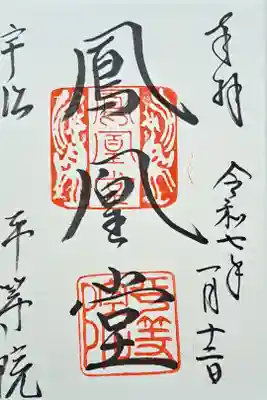 奉拝
令和七年一月十二日
鳳凰堂
鳳凰堂
宇治
平等院
平等院